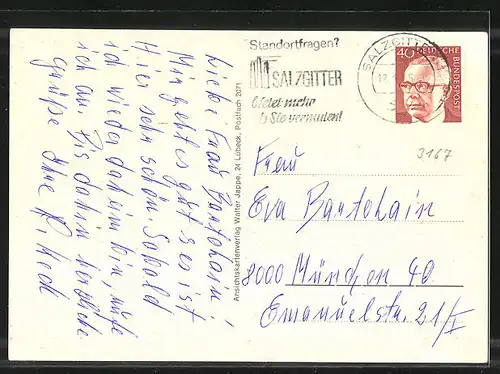 Liebe Frau Bartohain!
Mir geht es gut es ist
hier sehr schön. Sobald
ich wieder daheim bin, rufe
ich an. Bis dahin herzliche
Grüße Ihre
Ansichtskartenverlag Walter Jappe, 24 Lübeck, Postfach 2071
Standortfragen?
SALZGITTER
bietet mehr
als Sie vermuten!
SALZGITTER
40
DEUTSCHE
BUNDESPOST
3167
Frau
Eva Bartohain
8000 München 40
Emanuelstr. 21/I